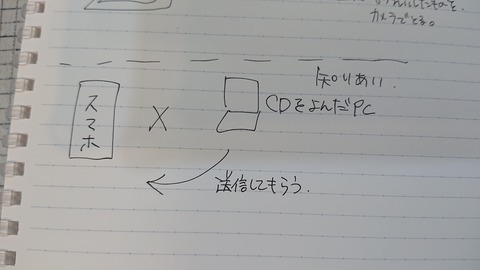 カメラでとる。
知りあい.
スマホ
X
CDをよんだPC
送信してもらう.